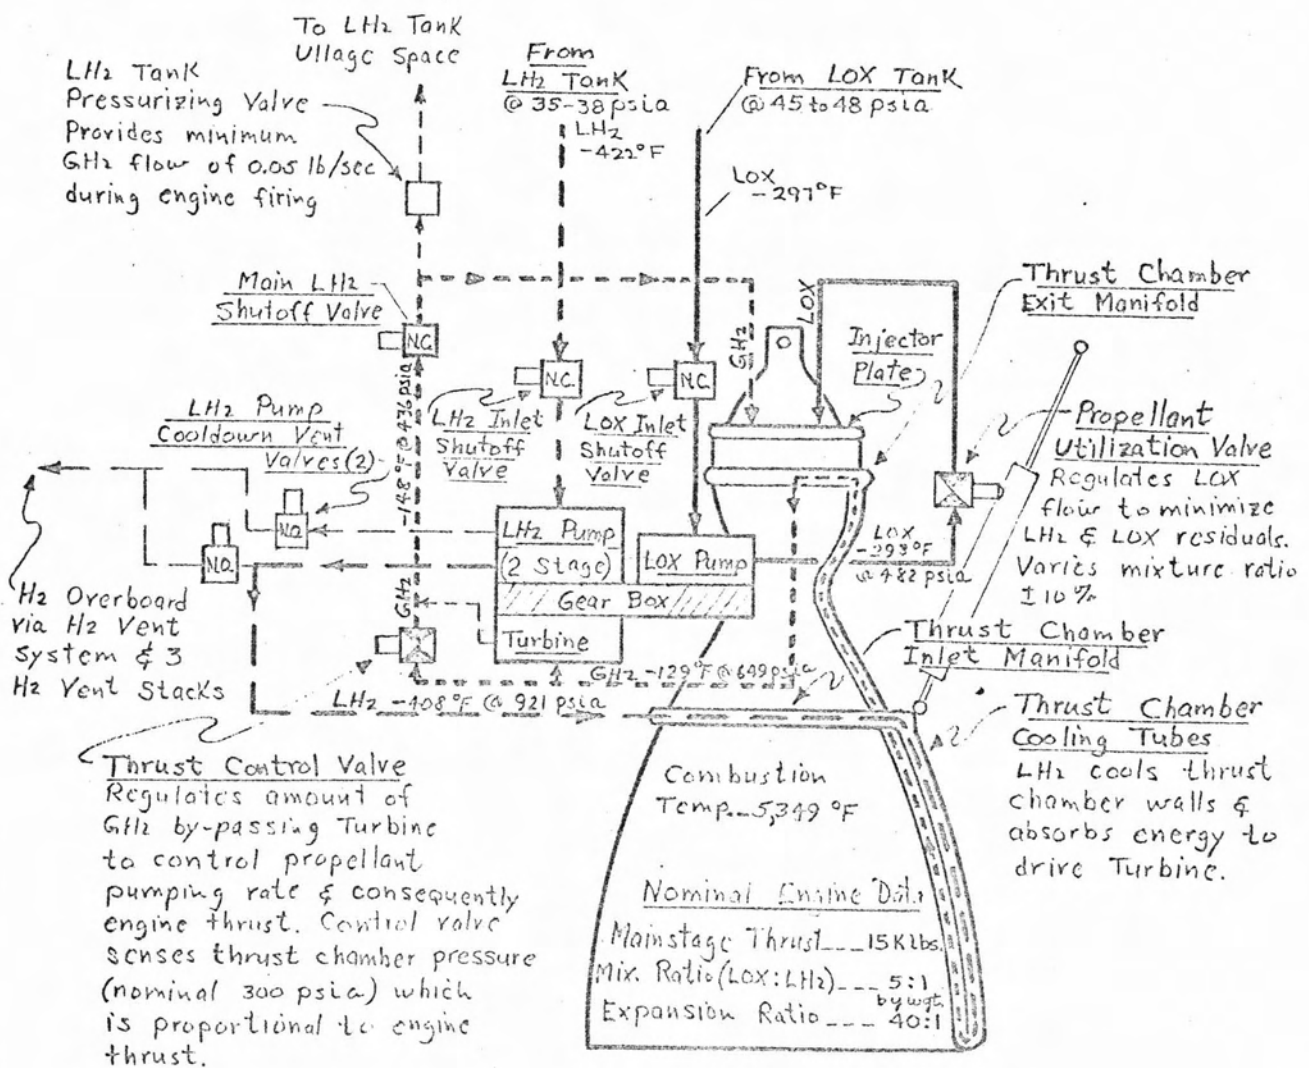 To LH2 Tank
Ullage Space
LH2 Tank
Pressurizing Valve
Provides minimum
GH2 flow of 0.05 lb/sec
during engine firing
From
LH2 Tank
@ 35-38 psia
LH2
-422°F
From LOX Tank
@ 45 to 48 psia
LOX
-297°F
Main LH2
Shutoff Valve
N.C.
N.C.
N.C.
LH2 Inlet
Shutoff
Valve
LOX Inlet
Shutoff
Valve
GH2
LOX
Injector
Plate
Thrust Chamber
Exit Manifold
LH2 Pump
Cooldown Vent
Valves (2)
N.O.
N.O.
GH2 -148°F @ 436 psia
H2 Overboard
via H2 Vent
System & 3
H2 Vent Stacks
LH2 Pump
(2 Stage)
LOX Pump
Gear Box
Turbine
LOX
-293°F
@ 482 psia
Propellant
Utilization Valve
Regulates LOX
flow to minimize
LH2 & LOX residuals.
Varies mixture ratio
±10%
GH2 -129°F @ 649 psia
LH2 -408°F @ 921 psia
Thrust Chamber
Inlet Manifold
Thrust Chamber
Cooling Tubes
LH2 cools thrust
chamber walls &
absorbs energy to
drive Turbine.
Thrust Control Valve
Regulates amount of
GH2 by-passing Turbine
to control propellant
pumping rate & consequently
engine thrust. Control valve
senses thrust chamber pressure
(nominal 300 psia) which
is proportional to engine
thrust.
Combustion
Temp.--5,349 °F
Nominal Engine Data
Mainstage Thrust___15K lbs.
Mix. Ratio (LOX:LH2)___ 5:1
by wgt
Expansion Ratio ___ 40:1